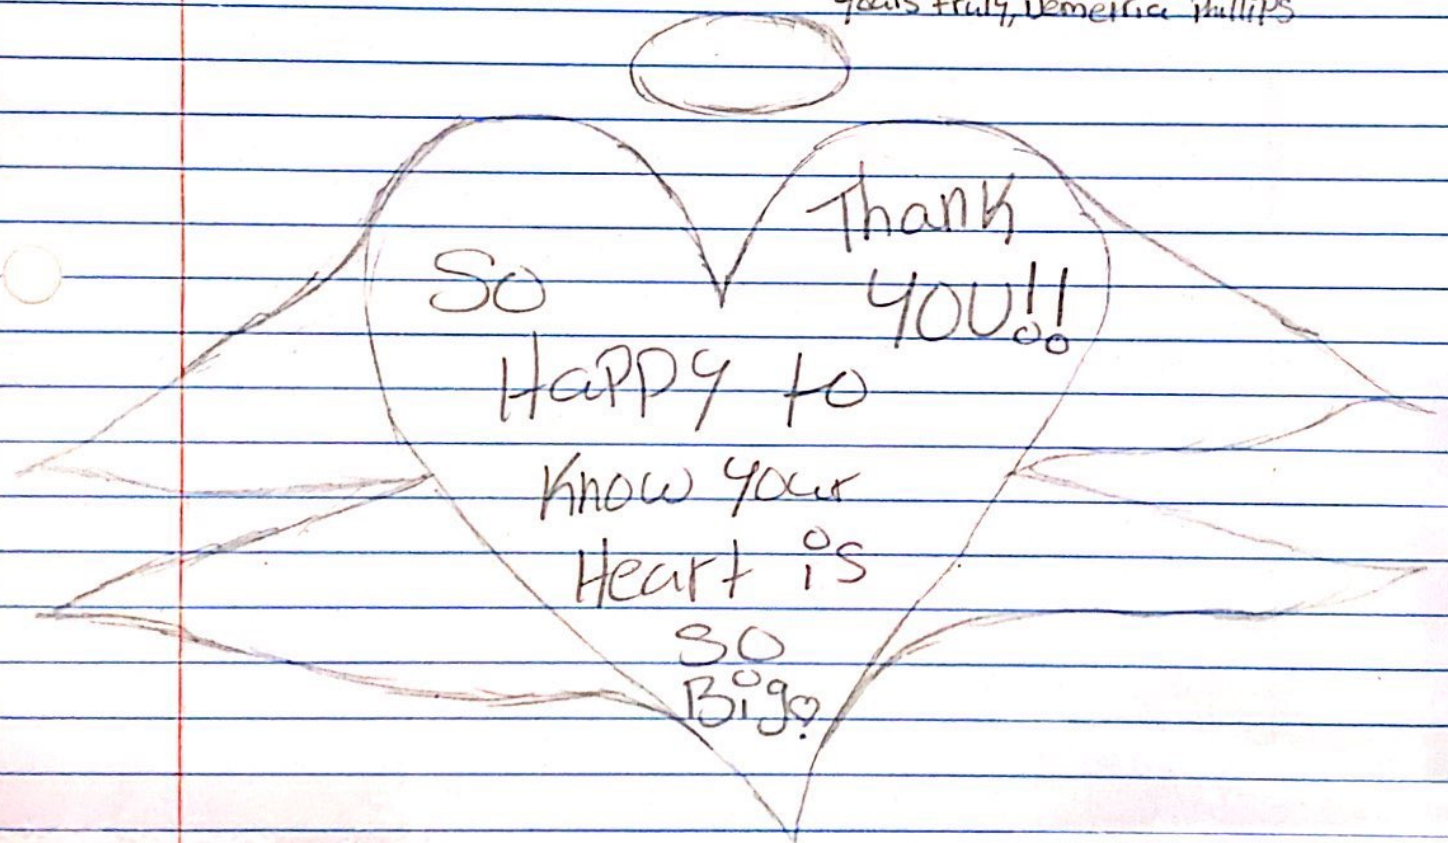 Yours truly, Demetria Phillips
Thank
YOU!!
So
Happy to
Know your
Heart is
so
Big.